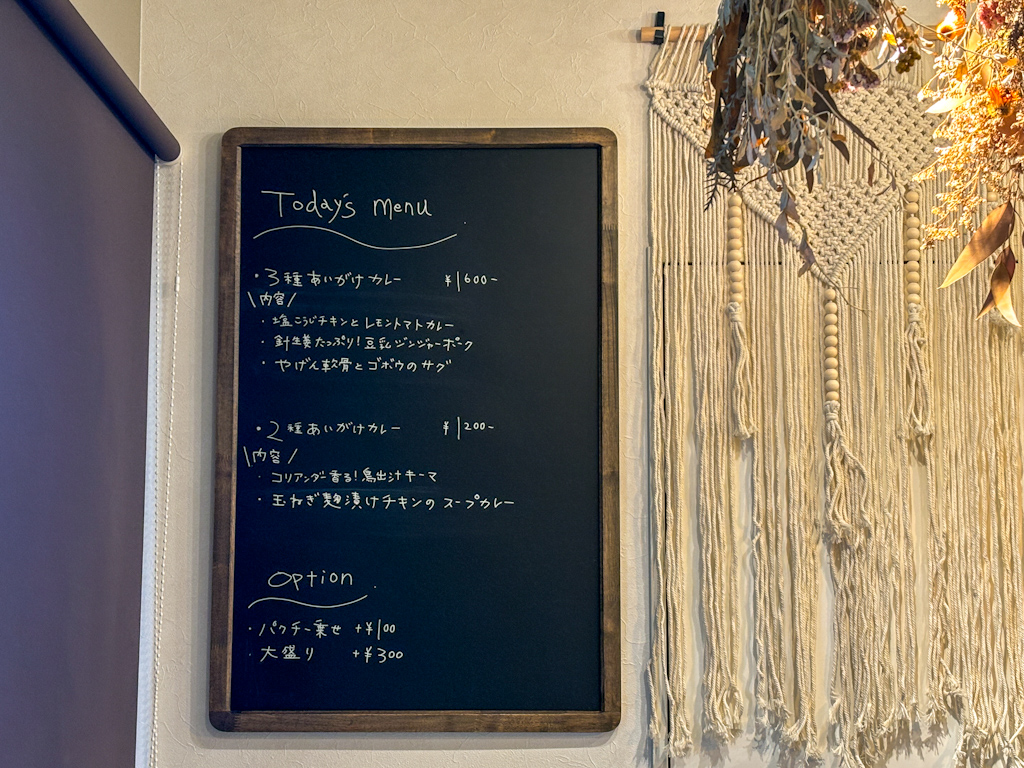 Today's menu
・3種あいがけカレー ¥1600-
\内容/
・塩こうじチキンとレモントマトカレー
・針生姜たっぷり！豆乳ジンジャーポーク
・やげん軟骨とゴボウのサグ
・2種あいがけカレー ¥1200-
\内容/
・コリアンダー香る！鳥出汁キーマ
・玉ねぎ麹漬けチキンのスープカレー
Option
・パクチー乗せ +¥100
・大盛り +¥300